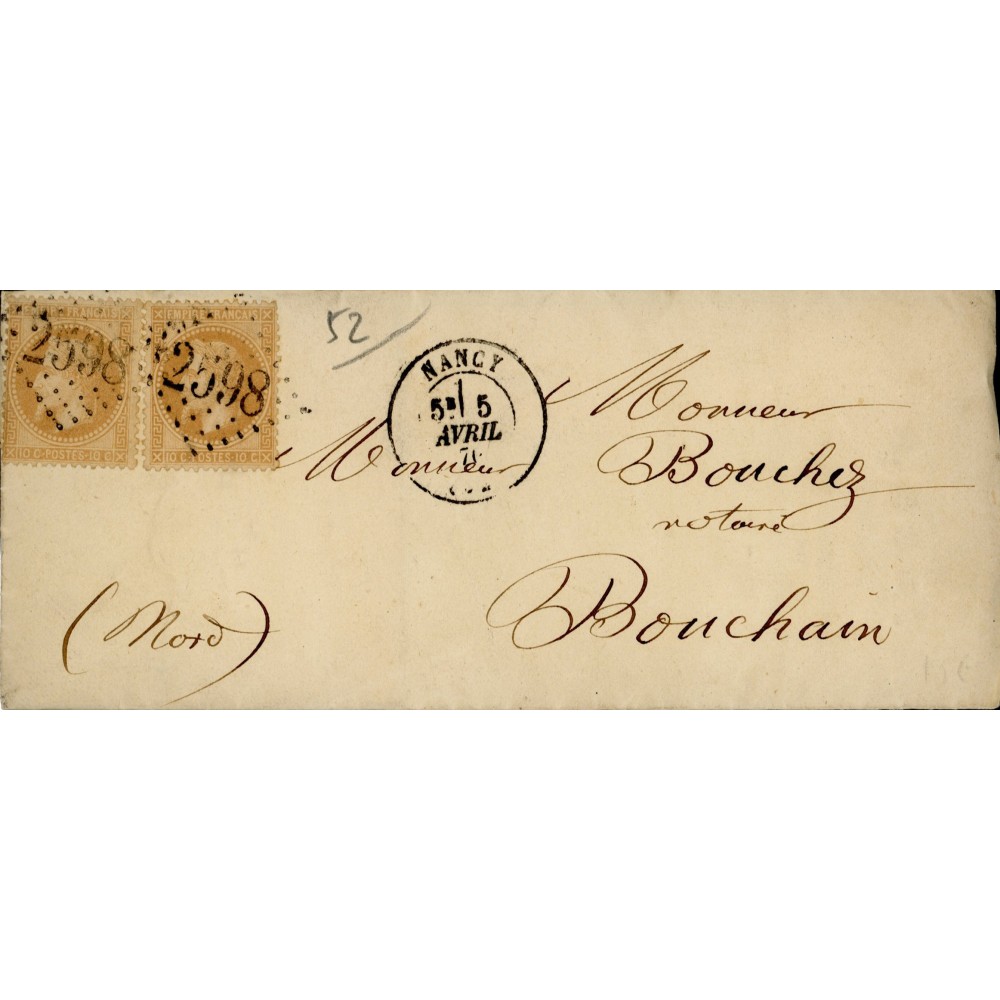 EMPIRE FRANCAIS
EMPIRE FRANCAIS
2598
2598
10 C-POSTES-10 C
10 C-POSTES-10 C
52
NANCY
5E 5
AVRIL
Monsieur
Monsieur
Bouchez
notaire
Bouchain
(Nord)